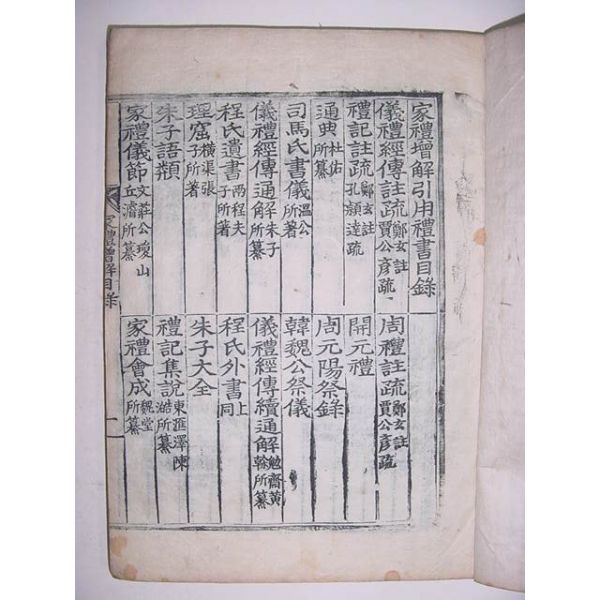 家禮增解引用禮書目錄
儀禮經傳註疏 鄭玄註 賈公彦疏
周禮註疏 鄭玄註 賈公彦疏
禮記註疏 鄭玄註 孔頴達疏
開元禮
通典 杜佑所纂
周元陽祭錄
司馬氏書儀 溫公所著
韓魏公祭儀
儀禮經傳通解 朱子所纂
儀禮經傳續通解 勉齋黃榦所纂
程氏遺書 兩程夫子所著
程氏外書 上同
理窟 橫渠張子所著
朱子大全
朱子語類
禮記集說 東匯澤陳澔所纂
家禮儀節 文莊公瓊山丘濬所纂
家禮會成 魏堂所纂
家禮增解目錄
一